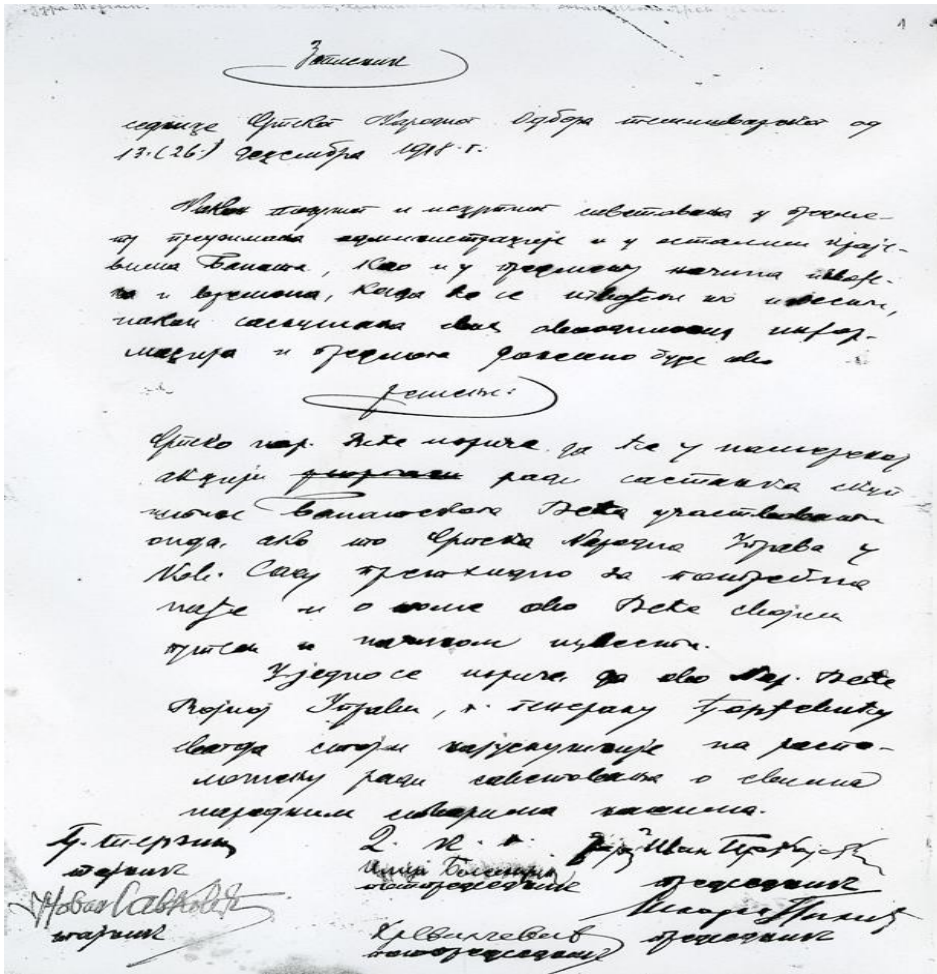 1
Записник
седнице Српског Народног Одбора темишварског од
13. (26.) децембра 1918. г.
Након дугог и исцрпног саветовања у предме-
ту преузимања администрације и у осталим краје-
вима Баната, као и у предмету начина
и времена, када ће се извести,
након саслушања свих инфор-
мација и предлога донешено буде ово
решење:
Српско нар. Веће изриче да ће у намераној
акцији ради састанка скуп
Банатског Већа учествовати
онда, ако то Српска Народна Управа у
Нов. Саду претходно за потребно
нађе и о томе ово Веће својим
путем и начином извести.
Уједно се изриче да ово Нар. Веће
Војној Управи, г. генералу Ђорђевићу
свагда стоји најуслужније на распо-
ложењу ради саветовања о свима
народним стварима нашима.
тајник
потпредседник
председник
Новак Савковић
тајник
потпредседник
председник